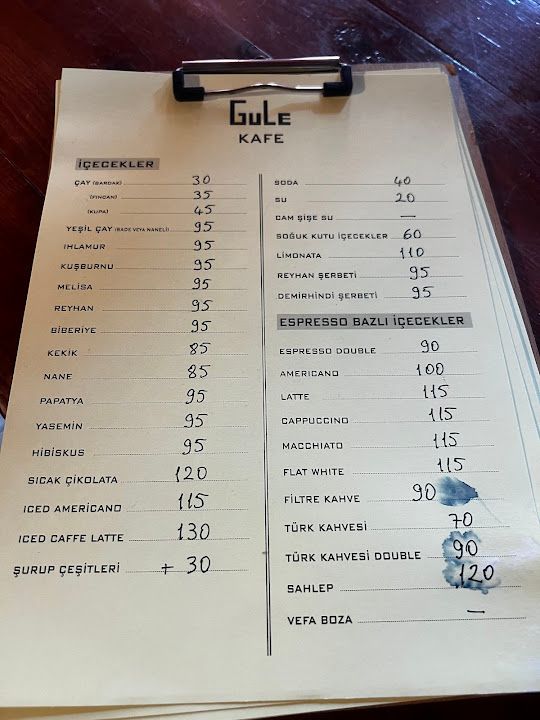 GuLe
KAFE
İÇECEKLER
ÇAY (BARDAK) 30
(FİNCAN) 35
(KUPA) 45
YEŞİL ÇAY (SADE VEYA NANELİ) 95
IHLAMUR 95
KUŞBURNU 95
MELİSA 95
REYHAN 95
BİBERİYE 95
KEKİK 85
NANE 85
PAPATYA 95
YASEMİN 95
HİBİSKUS 95
SICAK ÇİKOLATA 120
ICED AMERİCANO 115
ICED CAFFE LATTE 130
ŞURUP ÇEŞİTLERİ + 30
SODA 40
SU 20
CAM ŞİŞE SU —
SOĞUK KUTU İÇECEKLER 60
LİMONATA 110
REYHAN ŞERBETİ 95
DEMİRHİNDİ ŞERBETİ 95
ESPRESSO BAZLI İÇECEKLER
ESPRESSO DOUBLE 90
AMERICANO 100
LATTE 115
CAPPUCCINO 115
MACCHIATO 115
FLAT WHITE 115
FİLTRE KAHVE 90
TÜRK KAHVESİ 70
TÜRK KAHVESİ DOUBLE 90
SAHLEP 120
VEFA BOZA —